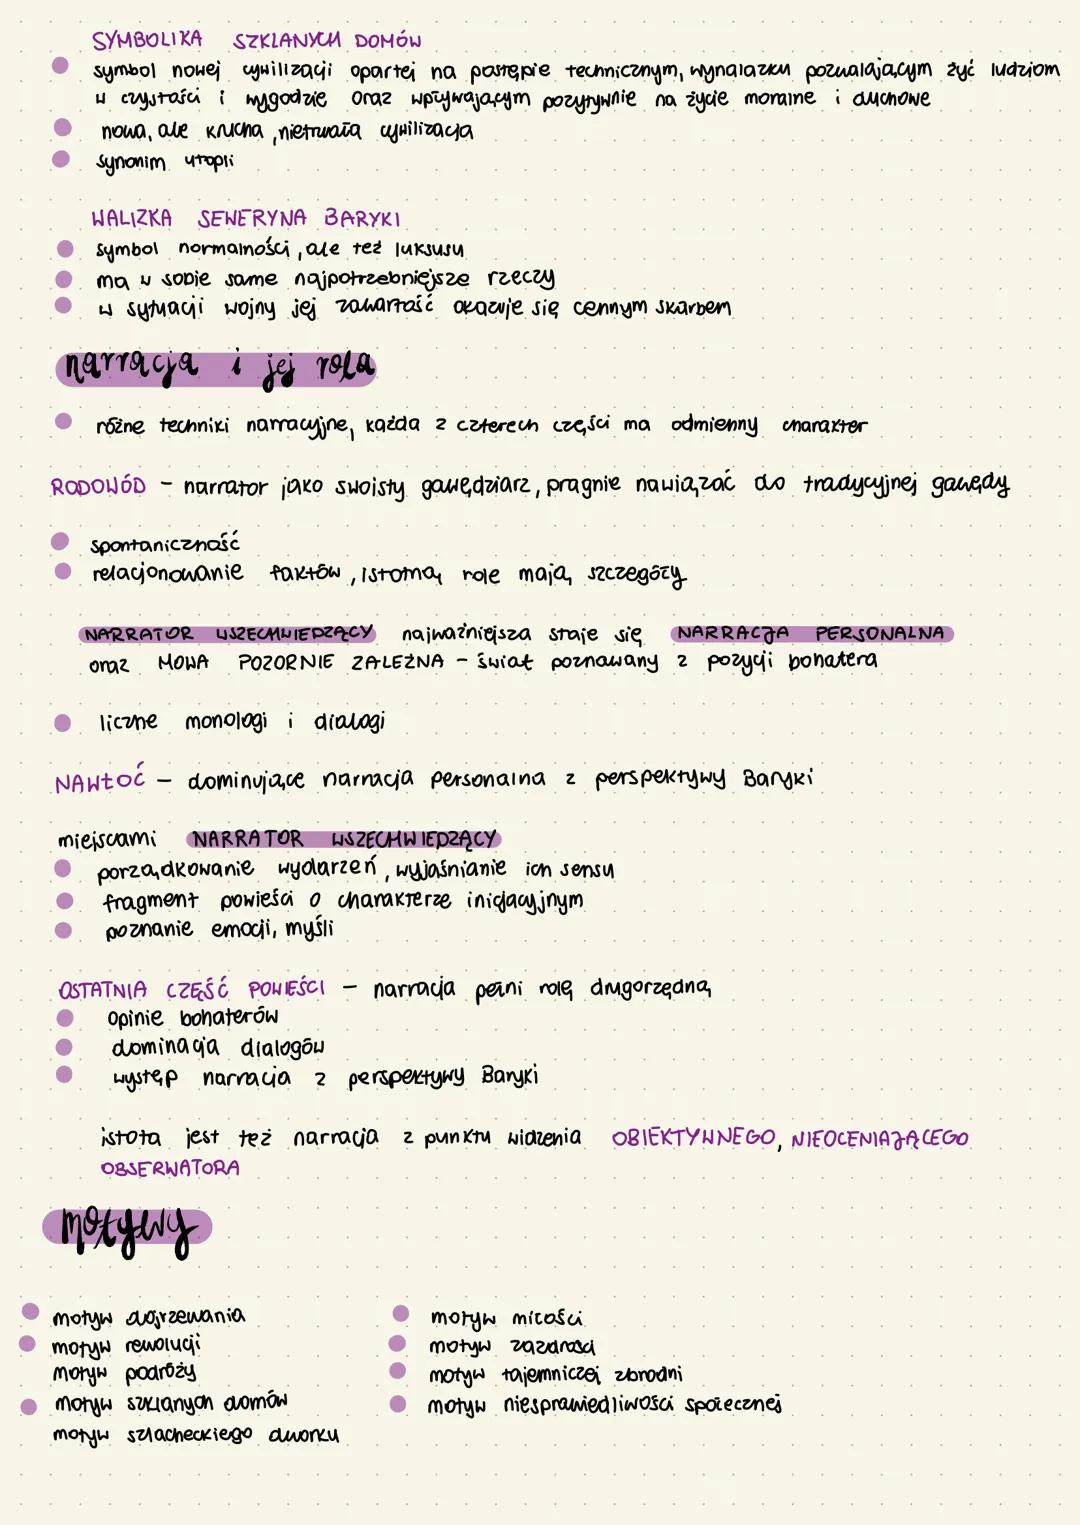 SYMBOLIKA SZKLANYCH DOMÓW
symbol nowej cywilizacji opartej na postępie technicznym, wynalazku pozwalającym żyć ludziom
w czystości i wygodzie oraz wpływającym pozytywnie na życie moralne i duchowe
nowa, ale krucha, nietrwała cywilizacja
synonim utopii
WALIZKA SEWERYNA BARYKI
symbol normalności, ale też luksusu
ma w sobie same najpotrzebniejsze rzeczy
w sytuacji wojny jej zawartość okazuje się cennym skarbem
narracja i jej rola
różne techniki narracyjne, każda z czterech części ma odmienny charakter
RODOWÓD – narrator jako swoisty gawędziarz, pragnie nawiązać do tradycyjnej gawędy
spontaniczność
relacjonowanie faktów, istotną role mają szczegóły
NARRATOR WSZECHWIEDZĄCY najważniejsza staje się NARRACJA PERSONALNA
oraz MOWA POZORNIE ZALEŻNA – świat poznawany z pozycji bohatera
liczne monologi i dialogi
NAWŁOĆ – dominujące narracja personalna z perspektywy Baryki
miejscami NARRATOR WSZECHWIEDZĄCY
porządkowanie wydarzeń, wyjaśnianie ich sensu
fragment powieści o charakterze inicjacyjnym
poznanie emocji, myśli
OSTATNIA CZĘŚĆ POWIEŚCI – narracja pełni rolę drugorzędną
opinie bohaterów
dominacja dialogów
występ narracja z perspektywy Baryki
istota jest też narracja z punktu widzenia OBIEKTYWNEGO, NIEOCENIAJĄCEGO
OBSERWATORA
motywy
motyw dojrzewania
motyw rewolucji
motyw podróży
motyw szklanych domów
motyw szlacheckiego dworku
motyw miłości
motyw zazdrości
motyw tajemniczej zbrodni
motyw niesprawiedliwości społecznej